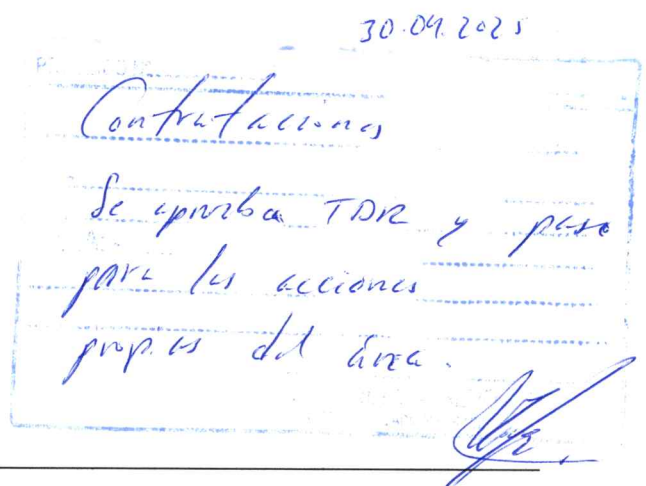 30.04.2025
Contrataciones
Se aprueba TDR y pase
para las acciones
propias del área.